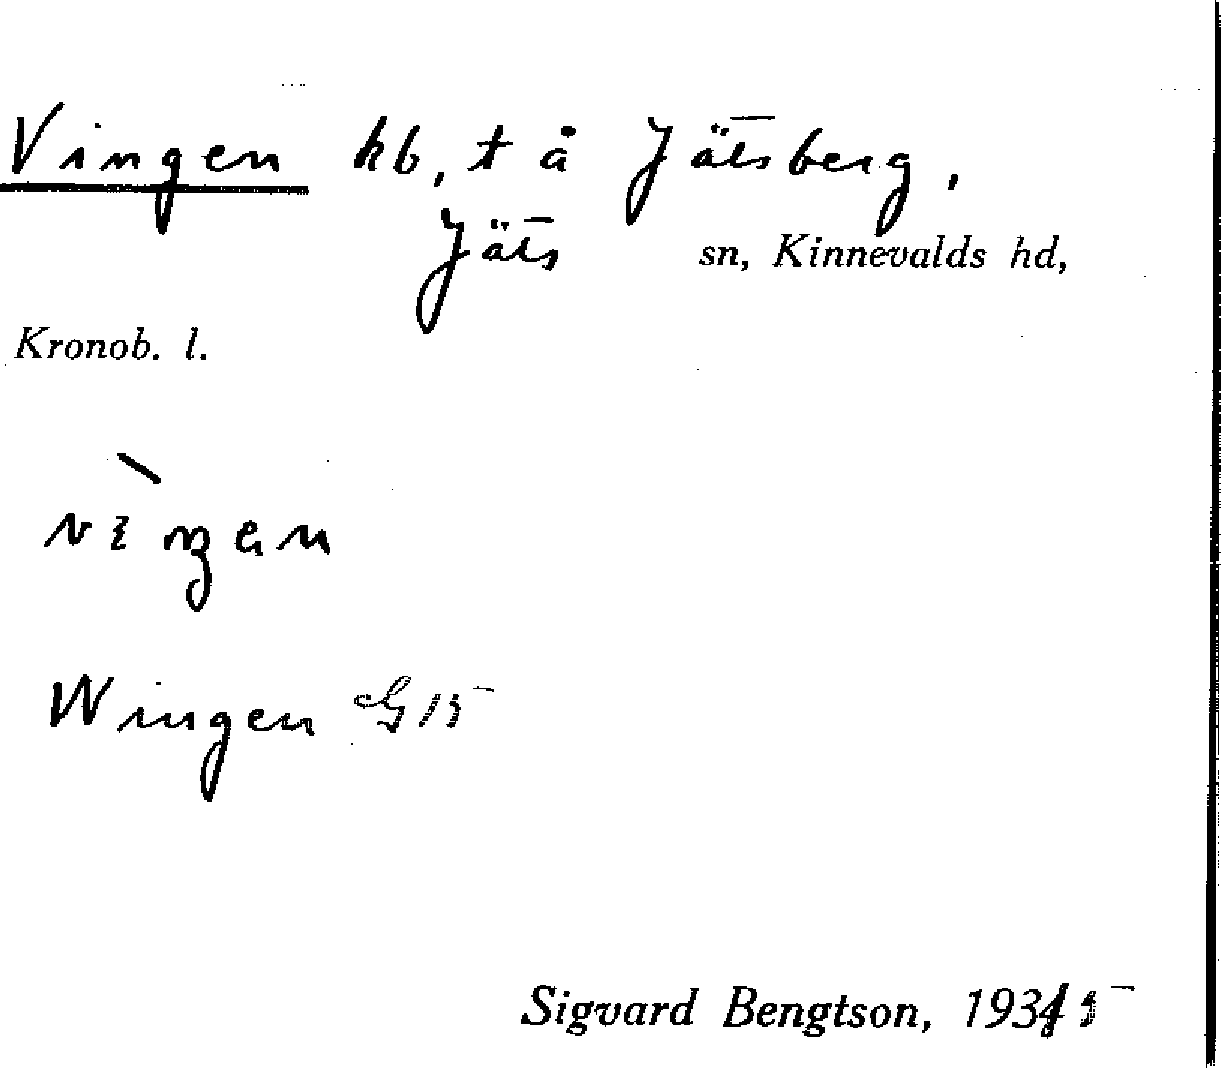 Vingen hb, t å Jätsberg,
Jäts sn, Kinnevalds hd,
Kronob. l.
Wingen G 15
Sigvard Bengtson, 1935